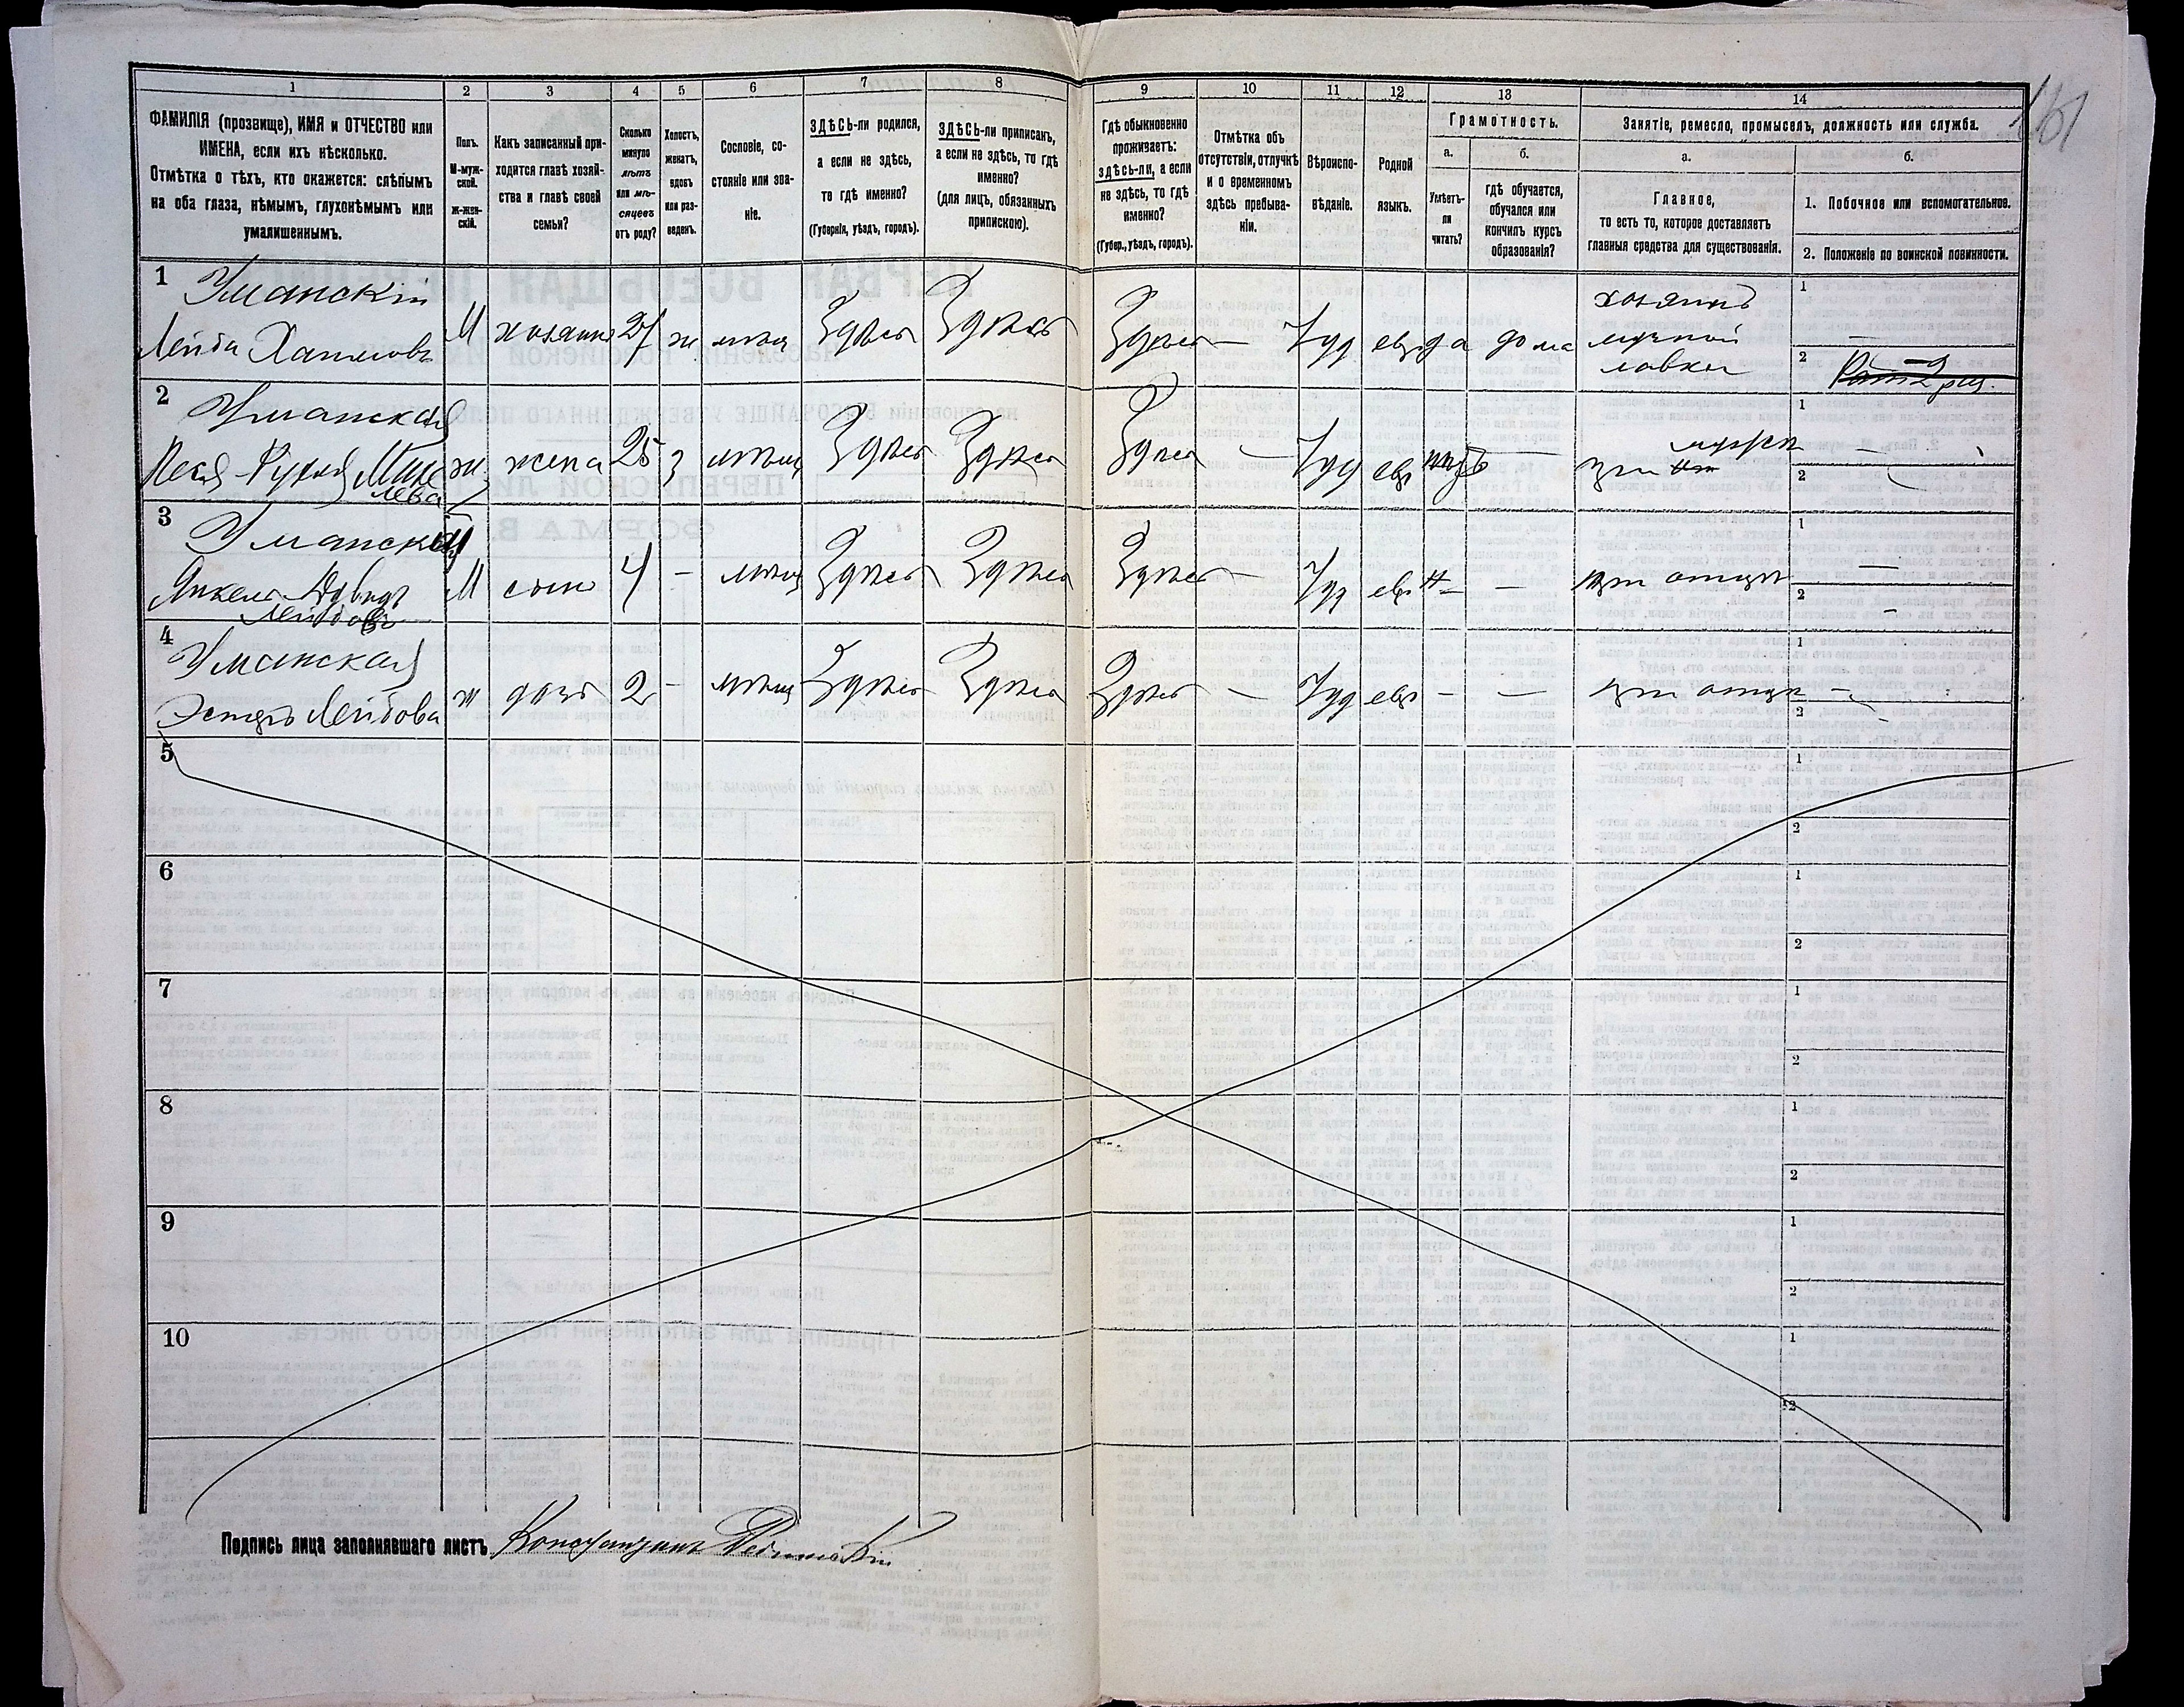 1 2 3 4 5 6 7 8 9 10 11 12 13 14
ФАМИЛІЯ (прозвище), ИМЯ и ОТЧЕСТВО или
ИМЕНА, если ихъ нѣсколько.
Отмѣтка о тѣхъ, кто окажется: слѣпымъ
на оба глаза, нѣмымъ, глухонѣмымъ или
умалишеннымъ.
Полъ.
М-муж-
ской.
Ж-жен-
скій.
Какъ записанный при-
ходится главѣ хозяй-
ства и главѣ своей
семьи?
Сколько
минуло
лѣтъ
или мѣ-
сяцевъ
отъ роду?
Холостъ,
женатъ,
вдовъ
или раз-
веденъ.
Сословіе, со-
стояніе или зва-
ніе.
ЗДѢСЬ-ли родился,
а если не здѣсь,
то гдѣ именно?
(Губернія, уѣздъ, городъ).
ЗДѢСЬ-ли приписанъ,
а если не здѣсь, то гдѣ
именно?
(для лицъ, обязанныхъ
припискою).
Гдѣ обыкновенно
проживаетъ:
здѣсь-ли, а если
не здѣсь, то гдѣ
именно?
(Губер., уѣздъ, городъ).
Отмѣтка объ
отсутствіи, отлучкѣ
и о временномъ
здѣсь пребыва-
ніи.
Вѣроиспо-
вѣданіе.
Родной
языкъ.
Грамотность.
а.
Умѣетъ-
ли
читать?
б.
гдѣ обучается,
обучался или
кончилъ курсъ
образованія?
Занятіе, ремесло, промыселъ, должность или служба.
а.
Главное,
то есть то, которое доставляетъ
главныя средства для существованія.
б.
1. Побочное или вспомогательное.
2. Положеніе по воинской повинности.
1 Уманскій
Лейба М хозяинъ 27 ж мѣщ Здѣсь Здѣсь Здѣсь — Іуд евр да дома
хозяинъ
мучной
лавки
1 —
2 —
2 Уманская
Рухля ж жена 25 з мѣщ Здѣсь Здѣсь Здѣсь — Іуд евр — при мужѣ
1 —
2
3 Уманскій
Янкель Лейбовъ М сынъ 4 - мѣщ Здѣсь Здѣсь Здѣсь — Іуд евр — при отцѣ
1 —
2 -
4 Уманская
Эстеръ Лейбова ж дочь 2 - мѣщ Здѣсь Здѣсь Здѣсь — Іуд евр - — при отцѣ
1 -
2
5 1
2
6 1
2
7 1
2
8 1
2
9 1
2
10 1
2
Подпись лица заполнявшаго листъ Константинъ